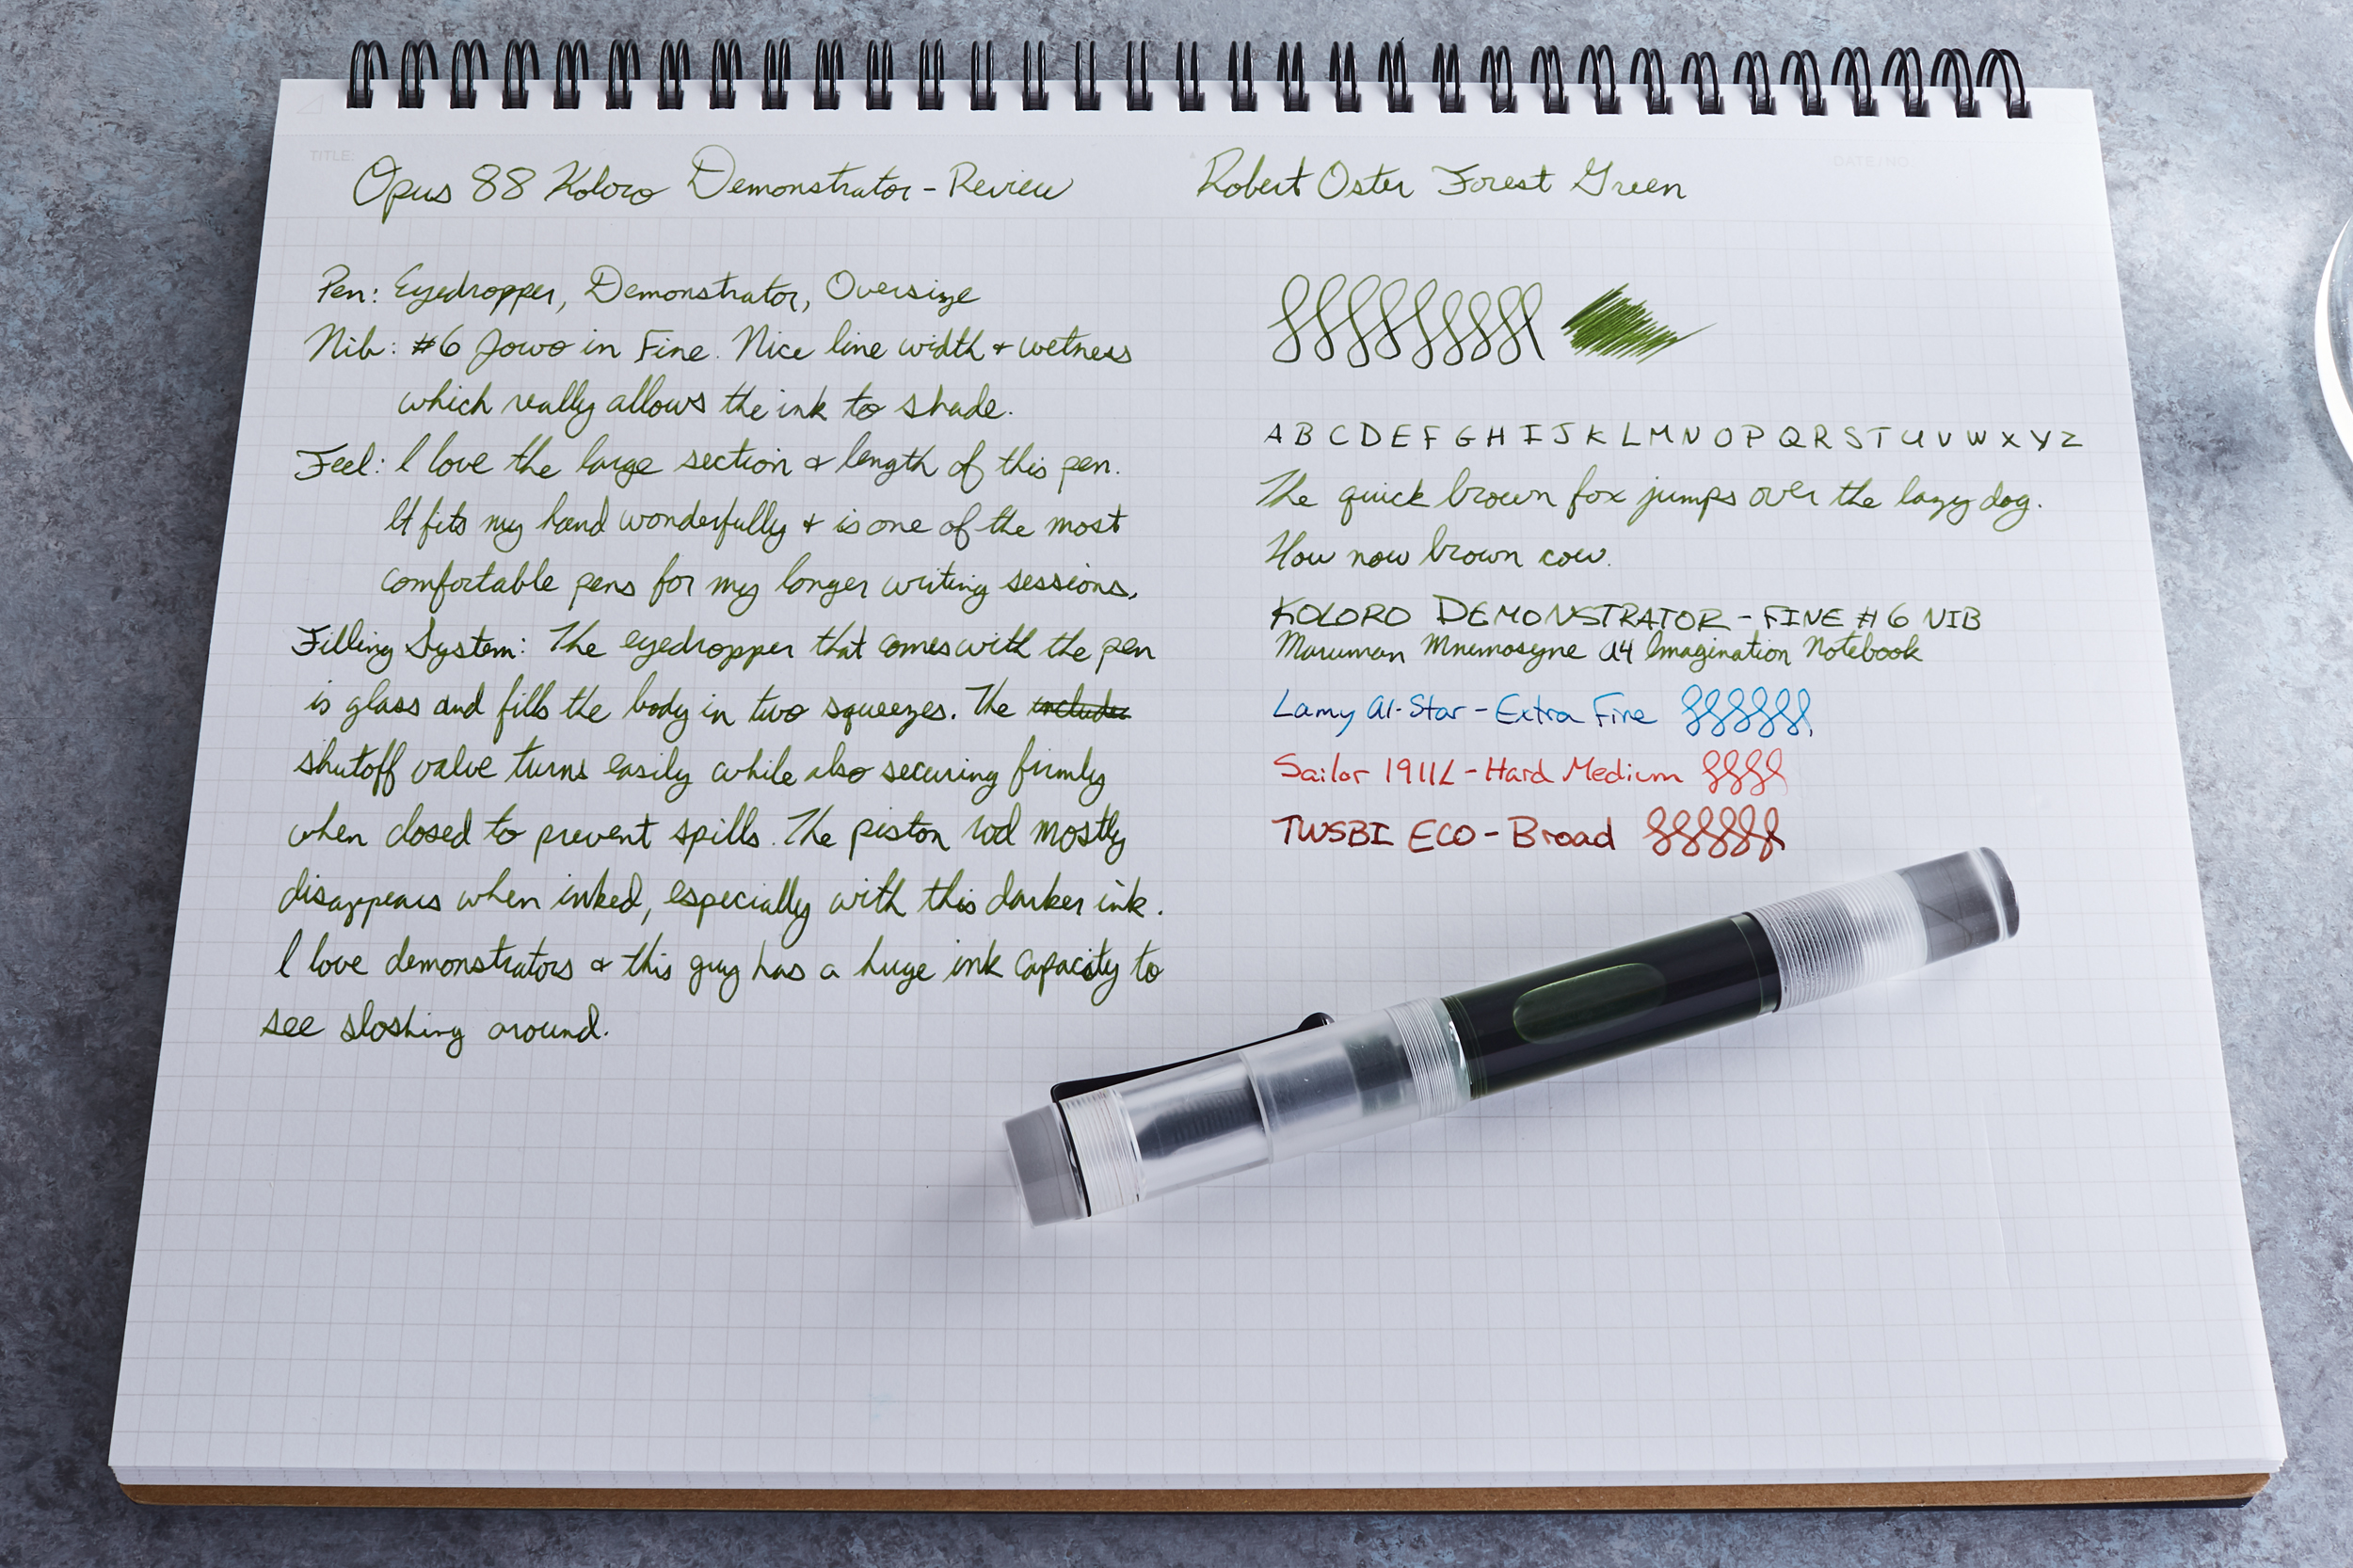 TITLE:
DATE/NO.
Opus 88 Koloro Demonstrator - Review
Robert Oster Forest Green
Pen: Eyedropper, Demonstrator, Oversize
Nib: #6 Jowo in Fine. Nice line width + wetness
which really allows the ink to shade.
Feel: I love the large section + length of this pen.
It fits my hand wonderfully + is one of the most
comfortable pens for my longer writing sessions.
Filling System: The eyedropper that comes with the pen
is glass and fills the body in two squeezes. The
shutoff valve turns easily while also securing firmly
when closed to prevent spills. The piston rod mostly
disappears when inked, especially with this darker ink.
I love demonstrators + this guy has a huge ink capacity to
see sloshing around.
A B C D E F G H I J K L M N O P Q R S T U V W X Y Z
The quick brown fox jumps over the lazy dog.
How now brown cow.
KOLORO DEMONSTRATOR - FINE #6 NIB
Maruman Mnemosyne A4 Imagination Notebook
Lamy Al-Star - Extra Fine
Sailor 1911L - Hard Medium
TWSBI ECO - Broad